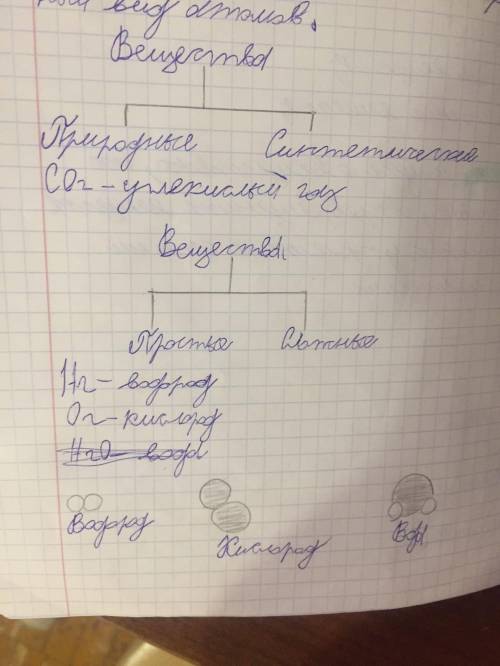 вид атомов.
Вещества
Природные Синтетические
CO2 - углекислый газ
Вещества
Простые Сложные
H2 - водород
O2 - кислород
H2O - вода
Водород Кислород Вода